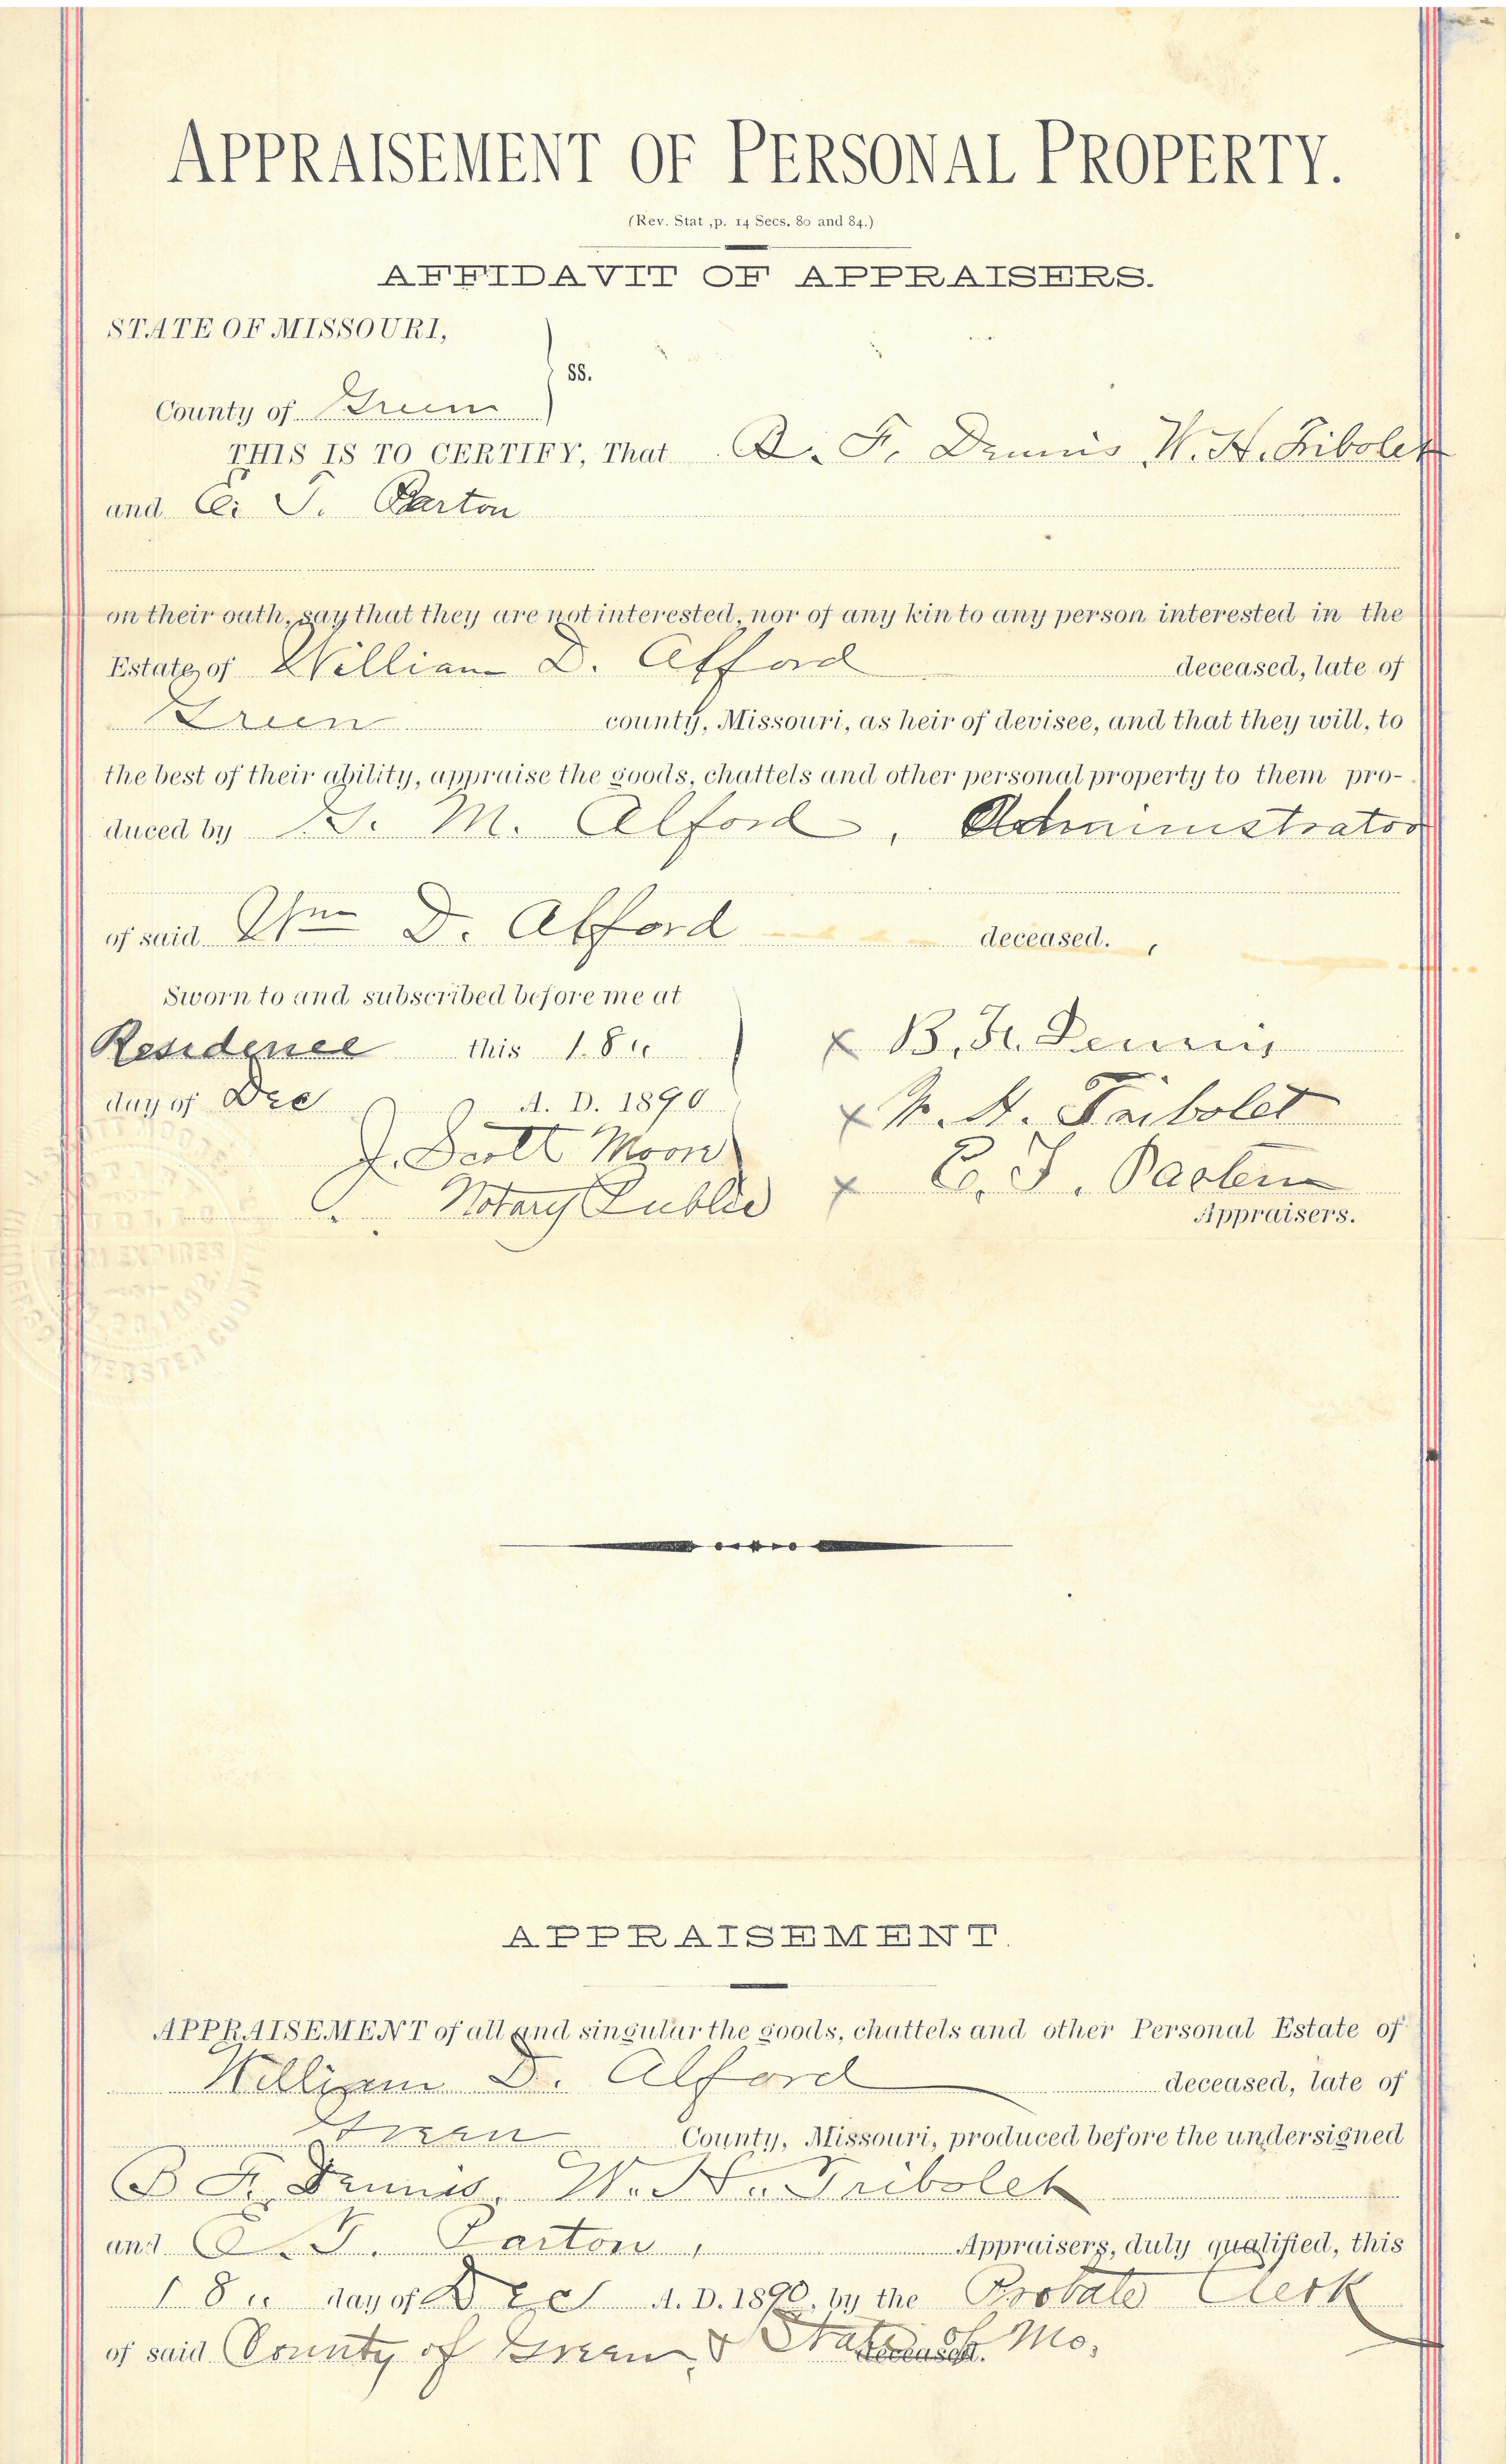 APPRAISEMENT OF PERSONAL PROPERTY.
(Rev. Stat ,p. 14 Secs. 80 and 84.)
AFFIDAVIT OF APPRAISERS.
STATE OF MISSOURI,
ss.
County of Green
THIS IS TO CERTIFY, That B. F. Dennis W. H. Tribolet
and E. T. Parton
on their oath, say that they are not interested, nor of any kin to any person interested in the
Estate of William D. Alford deceased, late of
Green county, Missouri, as heir of devisee, and that they will, to
the best of their ability, appraise the goods, chattels and other personal property to them pro-
duced by G. M. Alford, Administrator
of said Wm D. Alford deceased.
Sworn to and subscribed before me at
Residence this 18"
day of Dec A. D. 1890
J. Scott Moon
Notary Public
x B. F. Dennis
x W. H. Tribolet
x E. T. Parton
Appraisers.
TERM EXPIRES
WEBSTER COUNTY
APPRAISEMENT.
APPRAISEMENT of all and singular the goods, chattels and other Personal Estate of
William D. Alford deceased, late of
Green County, Missouri, produced before the undersigned
B F. Dennis, W. H. Tribolet
and E. T. Parton, Appraisers, duly qualified, this
18" day of Dec A. D. 1890, by the Probate Clerk
of said County of Green, & State of Mo. deceased.